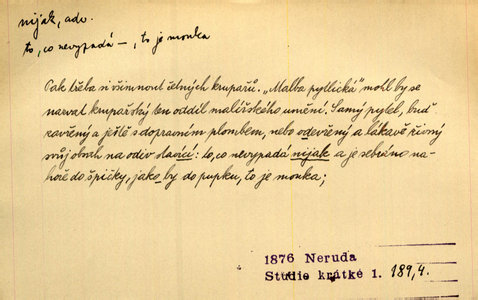 nijak, adv.
to, co nevypadá –, to je mouka
Pak třeba si všimnout četných krupařů. „Malba pytlická" mohl by se
nazvat krupařský ten oddíl malířského umění. Samý pytel, buď
zavřený a ještě s dopravním plombem, nebo odevřený a lákavě
svůj obsah na odiv stavící: to, co nevypadá nijak a je sebráno na-
hoře do špičky, jako by do pupku, to je mouka;
1876 Neruda
Studie krátké 1. 189,4.